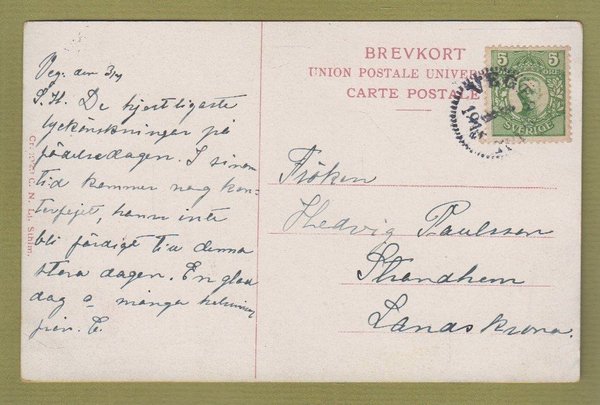 Veg. den 3/4
S. H. De hjertligaste
lyckönskningar på
födelsedagen. I sinom
tid kommer nog kon-
terfejet, hann inte
bli färdigt till denna
stora dagen. En glad
dag o många hälsningar
från. E.
BREVKORT
UNION POSTALE UNIVER
CARTE POSTALE
5 5
ÖRE
SVERIGE
VEGE
Fröken
Hedvig Paulsson
Strandhem
Landskrona.